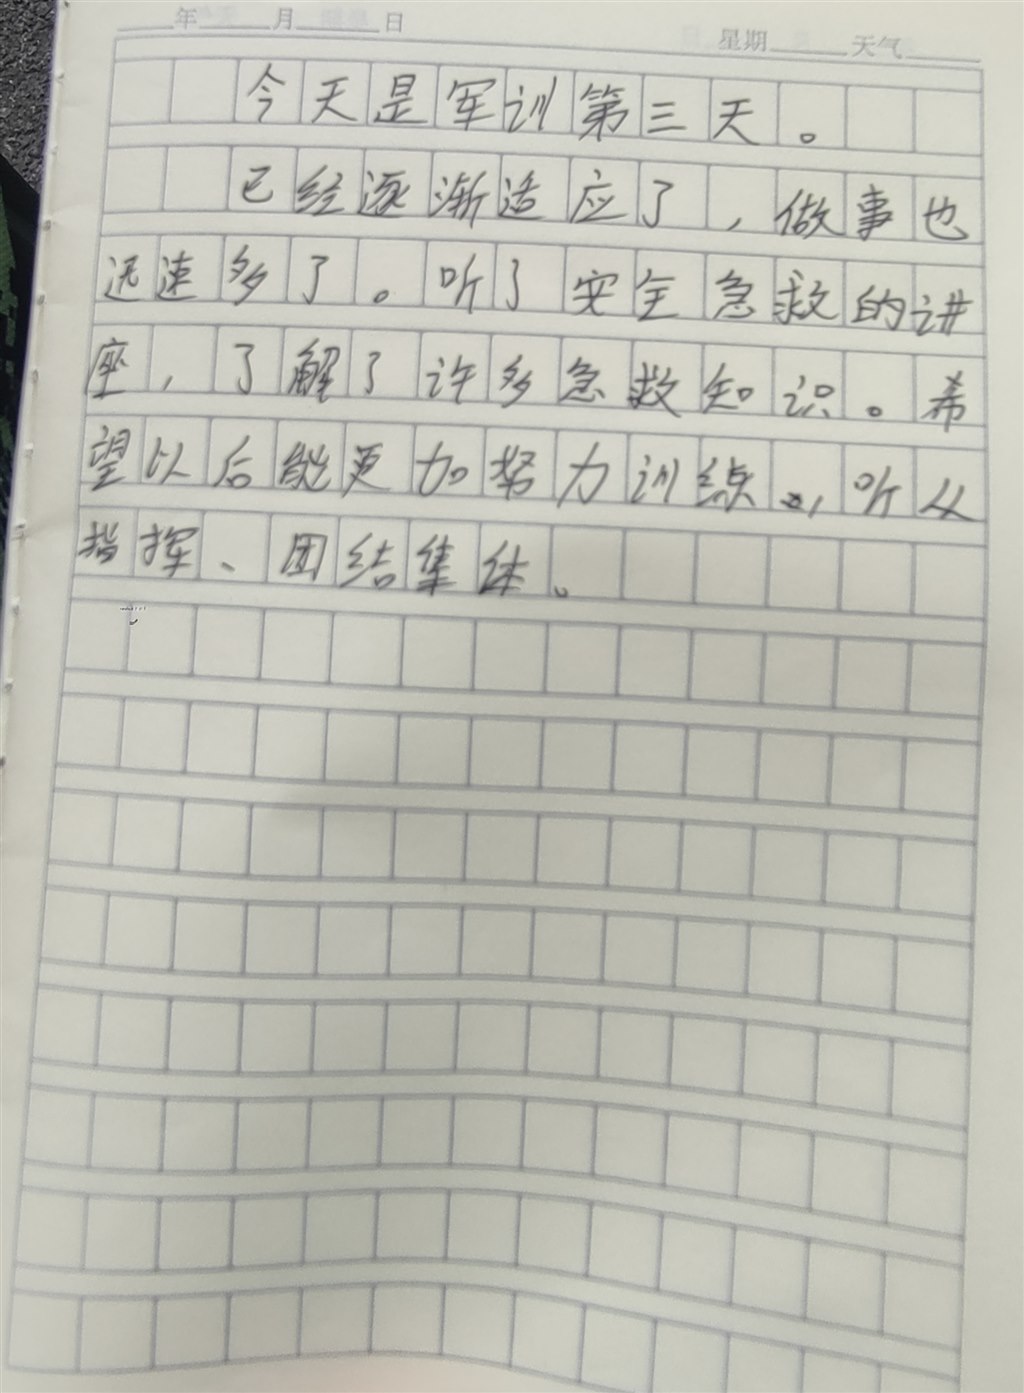 年 月 日 星期 天气
今天是军训第三天。
已经逐渐适应了,做事也
迅速多了。听了安全急救的讲
座,了解了许多急救知识。希
望以后能更加努力训练,听从
指挥、团结集体。